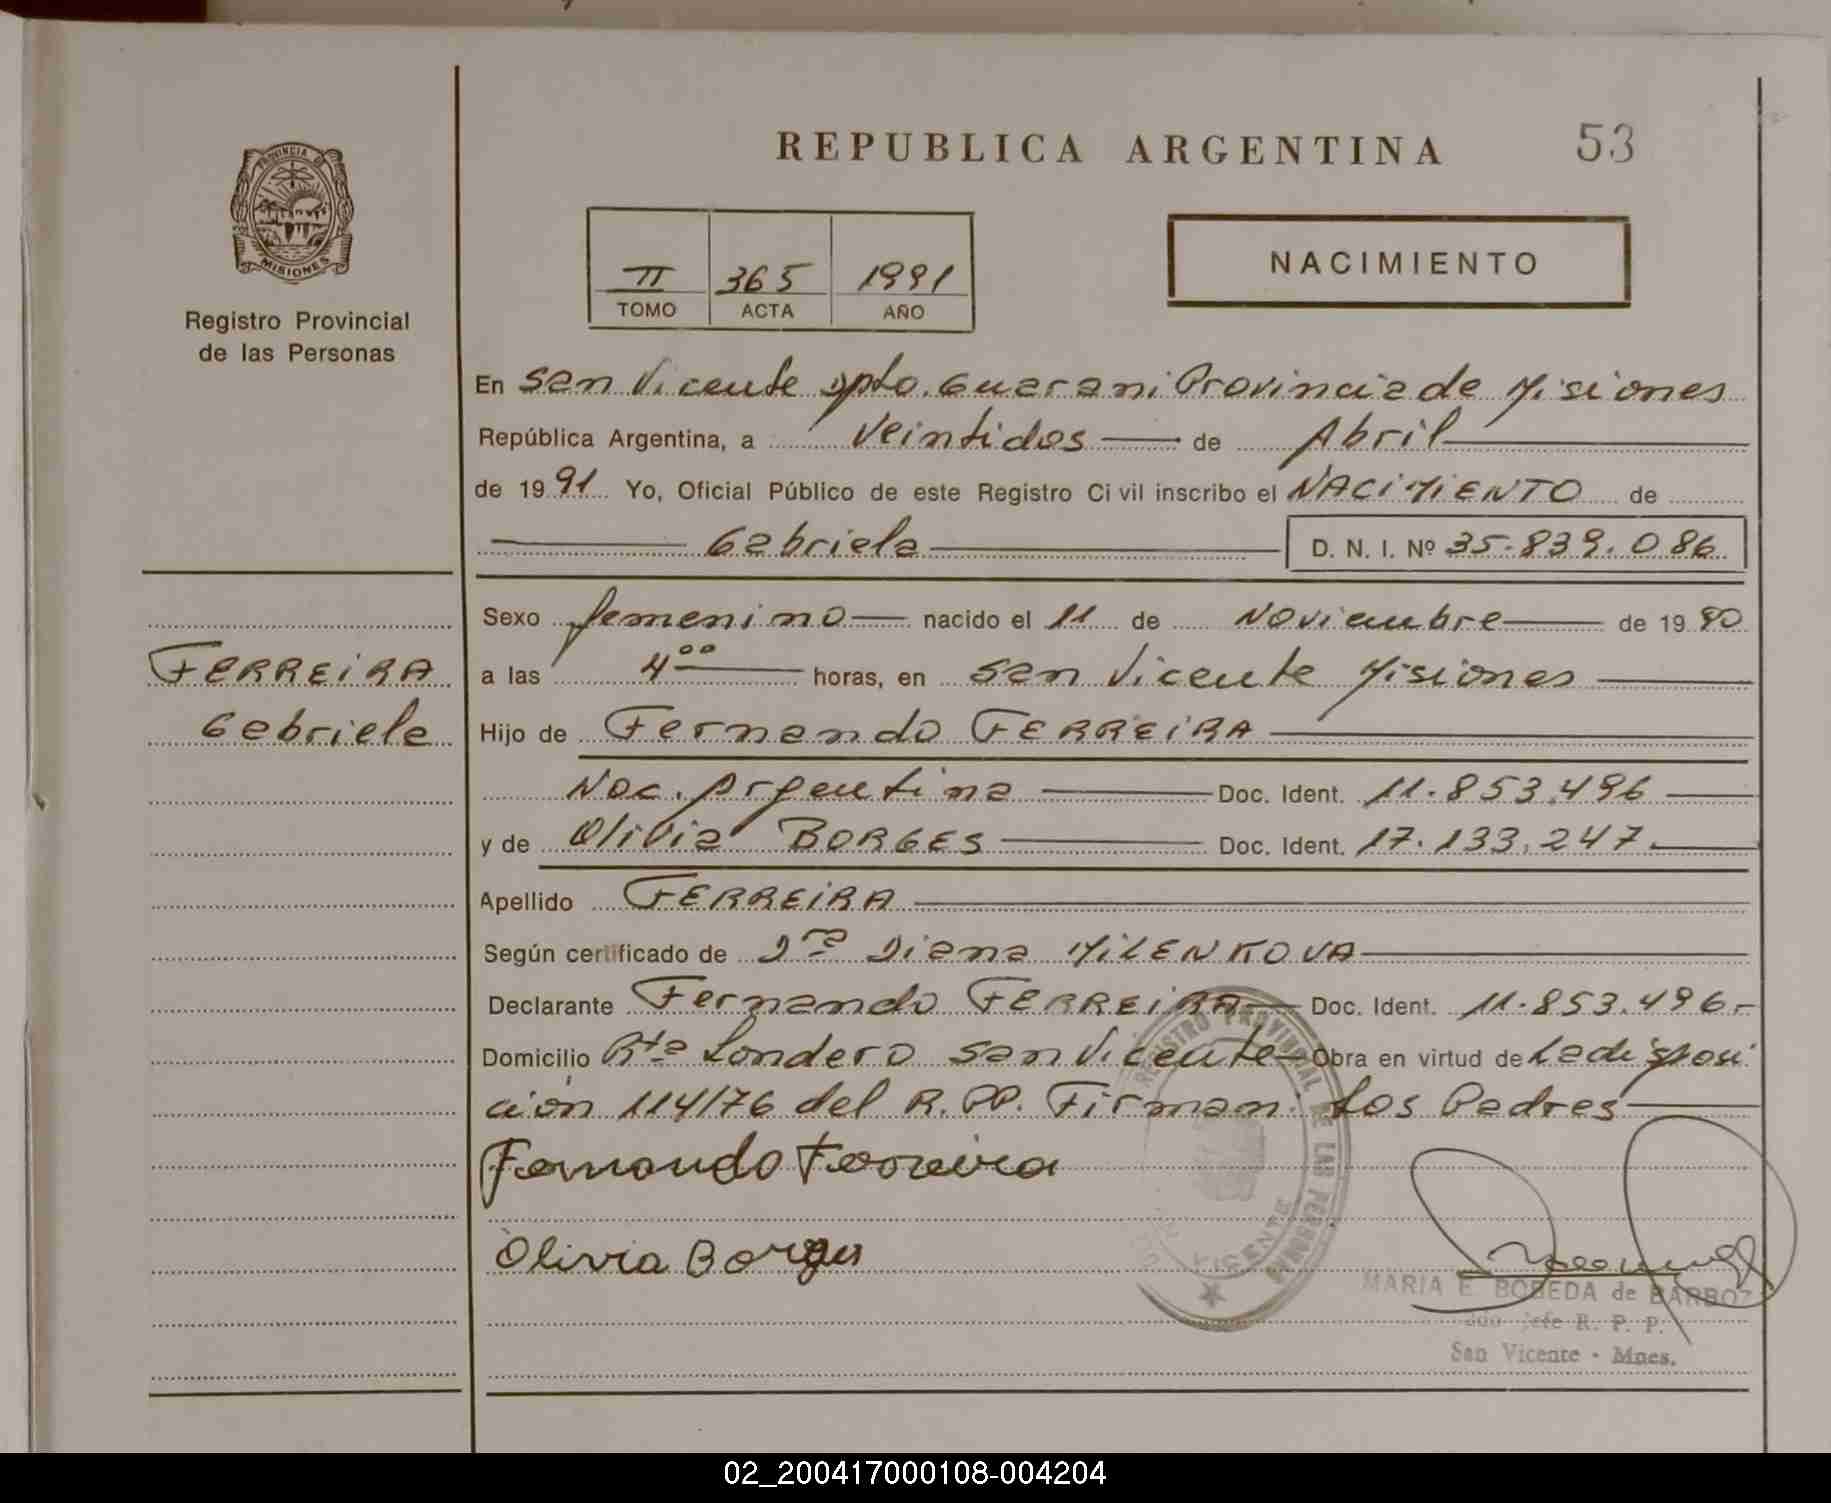 REPUBLICA ARGENTINA
53
PROVINCIA DE
MISIONES
Registro Provincial
de las Personas
II 365 1991
TOMO ACTA AÑO
NACIMIENTO
En San Vicente Dpto. Guarani Provincia de Misiones
República Argentina, a Veintidos de Abril
de 1991 Yo, Oficial Público de este Registro Civil inscribo el NACIMIENTO de
Gabriela D. N. I. Nº 35.839.086
Sexo femenino nacido el 11 de Noviembre de 1990
a las 4 00 horas, en San Vicente Misiones
FERREIRA
Gabriela
Hijo de Fernando FERREIRA
Nac. Argentina Doc. Ident. 11.853.496
y de Olivia BORGES Doc. Ident. 17.133.247
Apellido FERREIRA
Según certificado de Dra Diana MILENKOVA
Declarante Fernando FERREIRA Doc. Ident. 11.853.496.-
Domicilio Rta Londero San Vicente Obra en virtud de La disposi
ción 114/76 del R.PP. Firman: Los Padres
Fernando Ferreira
Olivia Borges
REGISTRO PROVINCIAL DE LAS PERSONAS
VICENTE
MARIA E. BOBEDA de BARBOZ
Jefe R. P. P.
San Vicente - Mnes.
02_200417000108-004204